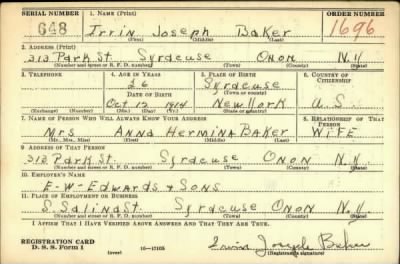 SERIAL NUMBER 1. NAME (Print) ORDER NUMBER
648 Irrin Joseph Baker 1696
(First) (Middle) (Last)
2. ADDRESS (Print)
313 Park St. Syracuse Onon N.Y.
(Number and street or R. F. D. number) (Town) (County) (State)
3. TELEPHONE 4. AGE IN YEARS 5. PLACE OF BIRTH 6. COUNTRY OF CITIZENSHIP
26 Syracuse
DATE OF BIRTH (Town or county)
Oct 12 1914 New York U.S.
(Exchange) (Number) (Mo.) (Day) (Yr.) (State or country)
7. NAME OF PERSON WHO WILL ALWAYS KNOW YOUR ADDRESS 8. RELATIONSHIP OF THAT PERSON
Mrs Anna Hermina Baker WiFE
(Mr., Mrs., Miss) (First) (Middle) (Last)
9. ADDRESS OF THAT PERSON
313 Park St. Syracuse Onon N.Y.
(Number and street or R. F. D. number) (Town) (County) (State)
10. EMPLOYER'S NAME
E-W-Edwards & Sons
11. PLACE OF EMPLOYMENT OR BUSINESS
S. Salina St. Syracuse Onon N.Y.
(Number and street or R. F. D. number) (Town) (County) (State)
I AFFIRM THAT I HAVE VERIFIED ABOVE ANSWERS AND THAT THEY ARE TRUE.
REGISTRATION CARD
D. S. S. FORM 1 (over) 16-17105 Irvin Joseph Baker
(Registrant's signature)